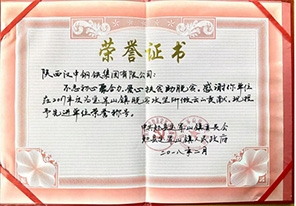 荣誉证书
陕西汉中钢铁集团有限公司：
不忘初心聚合力，爱心扶贫助脱贫。感谢你单位
在2017年度为定军山镇脱贫攻坚所做出的贡献，现授
予先进单位荣誉称号。
中共勉县定军山镇委员会
勉县定军山镇人民政府
二〇一八年二月